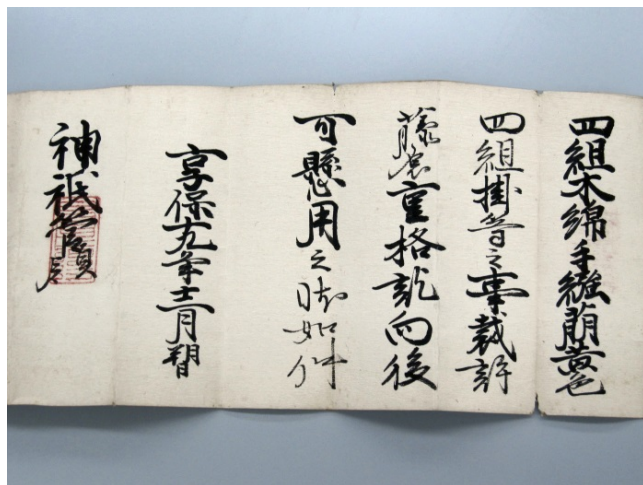 四組木綿手繦萌黄色
四組掛之事裁許
藤原重格訖向後
可懸用之状如件
享保十九年十二月朔日
神祇管領